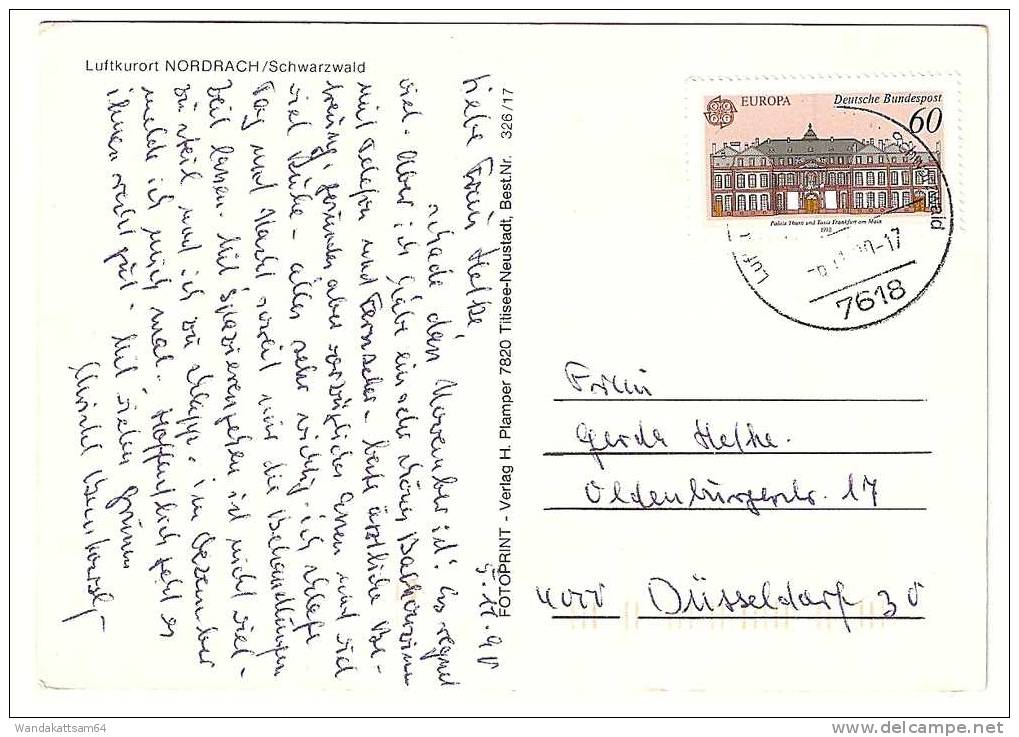 Luftkurort NORDRACH/Schwarzwald
5.11.90
Liebe Frau Hethe,
schade dan November ist! Es regnet
viel. Aber ich habe ein sehr
mit Telefon und Fernseher - beste ärztliche Be-
treuung, gesundes aber vorzügliches Essen und viel
viel Ruhe - alles sehr wichtig. ich schlafe
Tag und Nacht soweit mir die Behandlungen
Zeit lassen. Mit Spazierengehen ist nicht viel -
zu steil und ich zu schlapp. im Dezember
melde ich mich mal. Hoffentlich geht es
Ihnen recht gut. Mit vielen Grüssen
FOTOPRINT - Verlag H. Plamper 7820 Titisee-Neustadt, Best.Nr. 326/17
EUROPA
Deutsche Bundespost
60
Palais Thurn und Taxis Frankfurt am Main
1990
7618
Frau
Gerda Hethe.
Oldenburgerstr. 17
4000 Düsseldorf 30
Wandakattsam64
www.delcampe.net